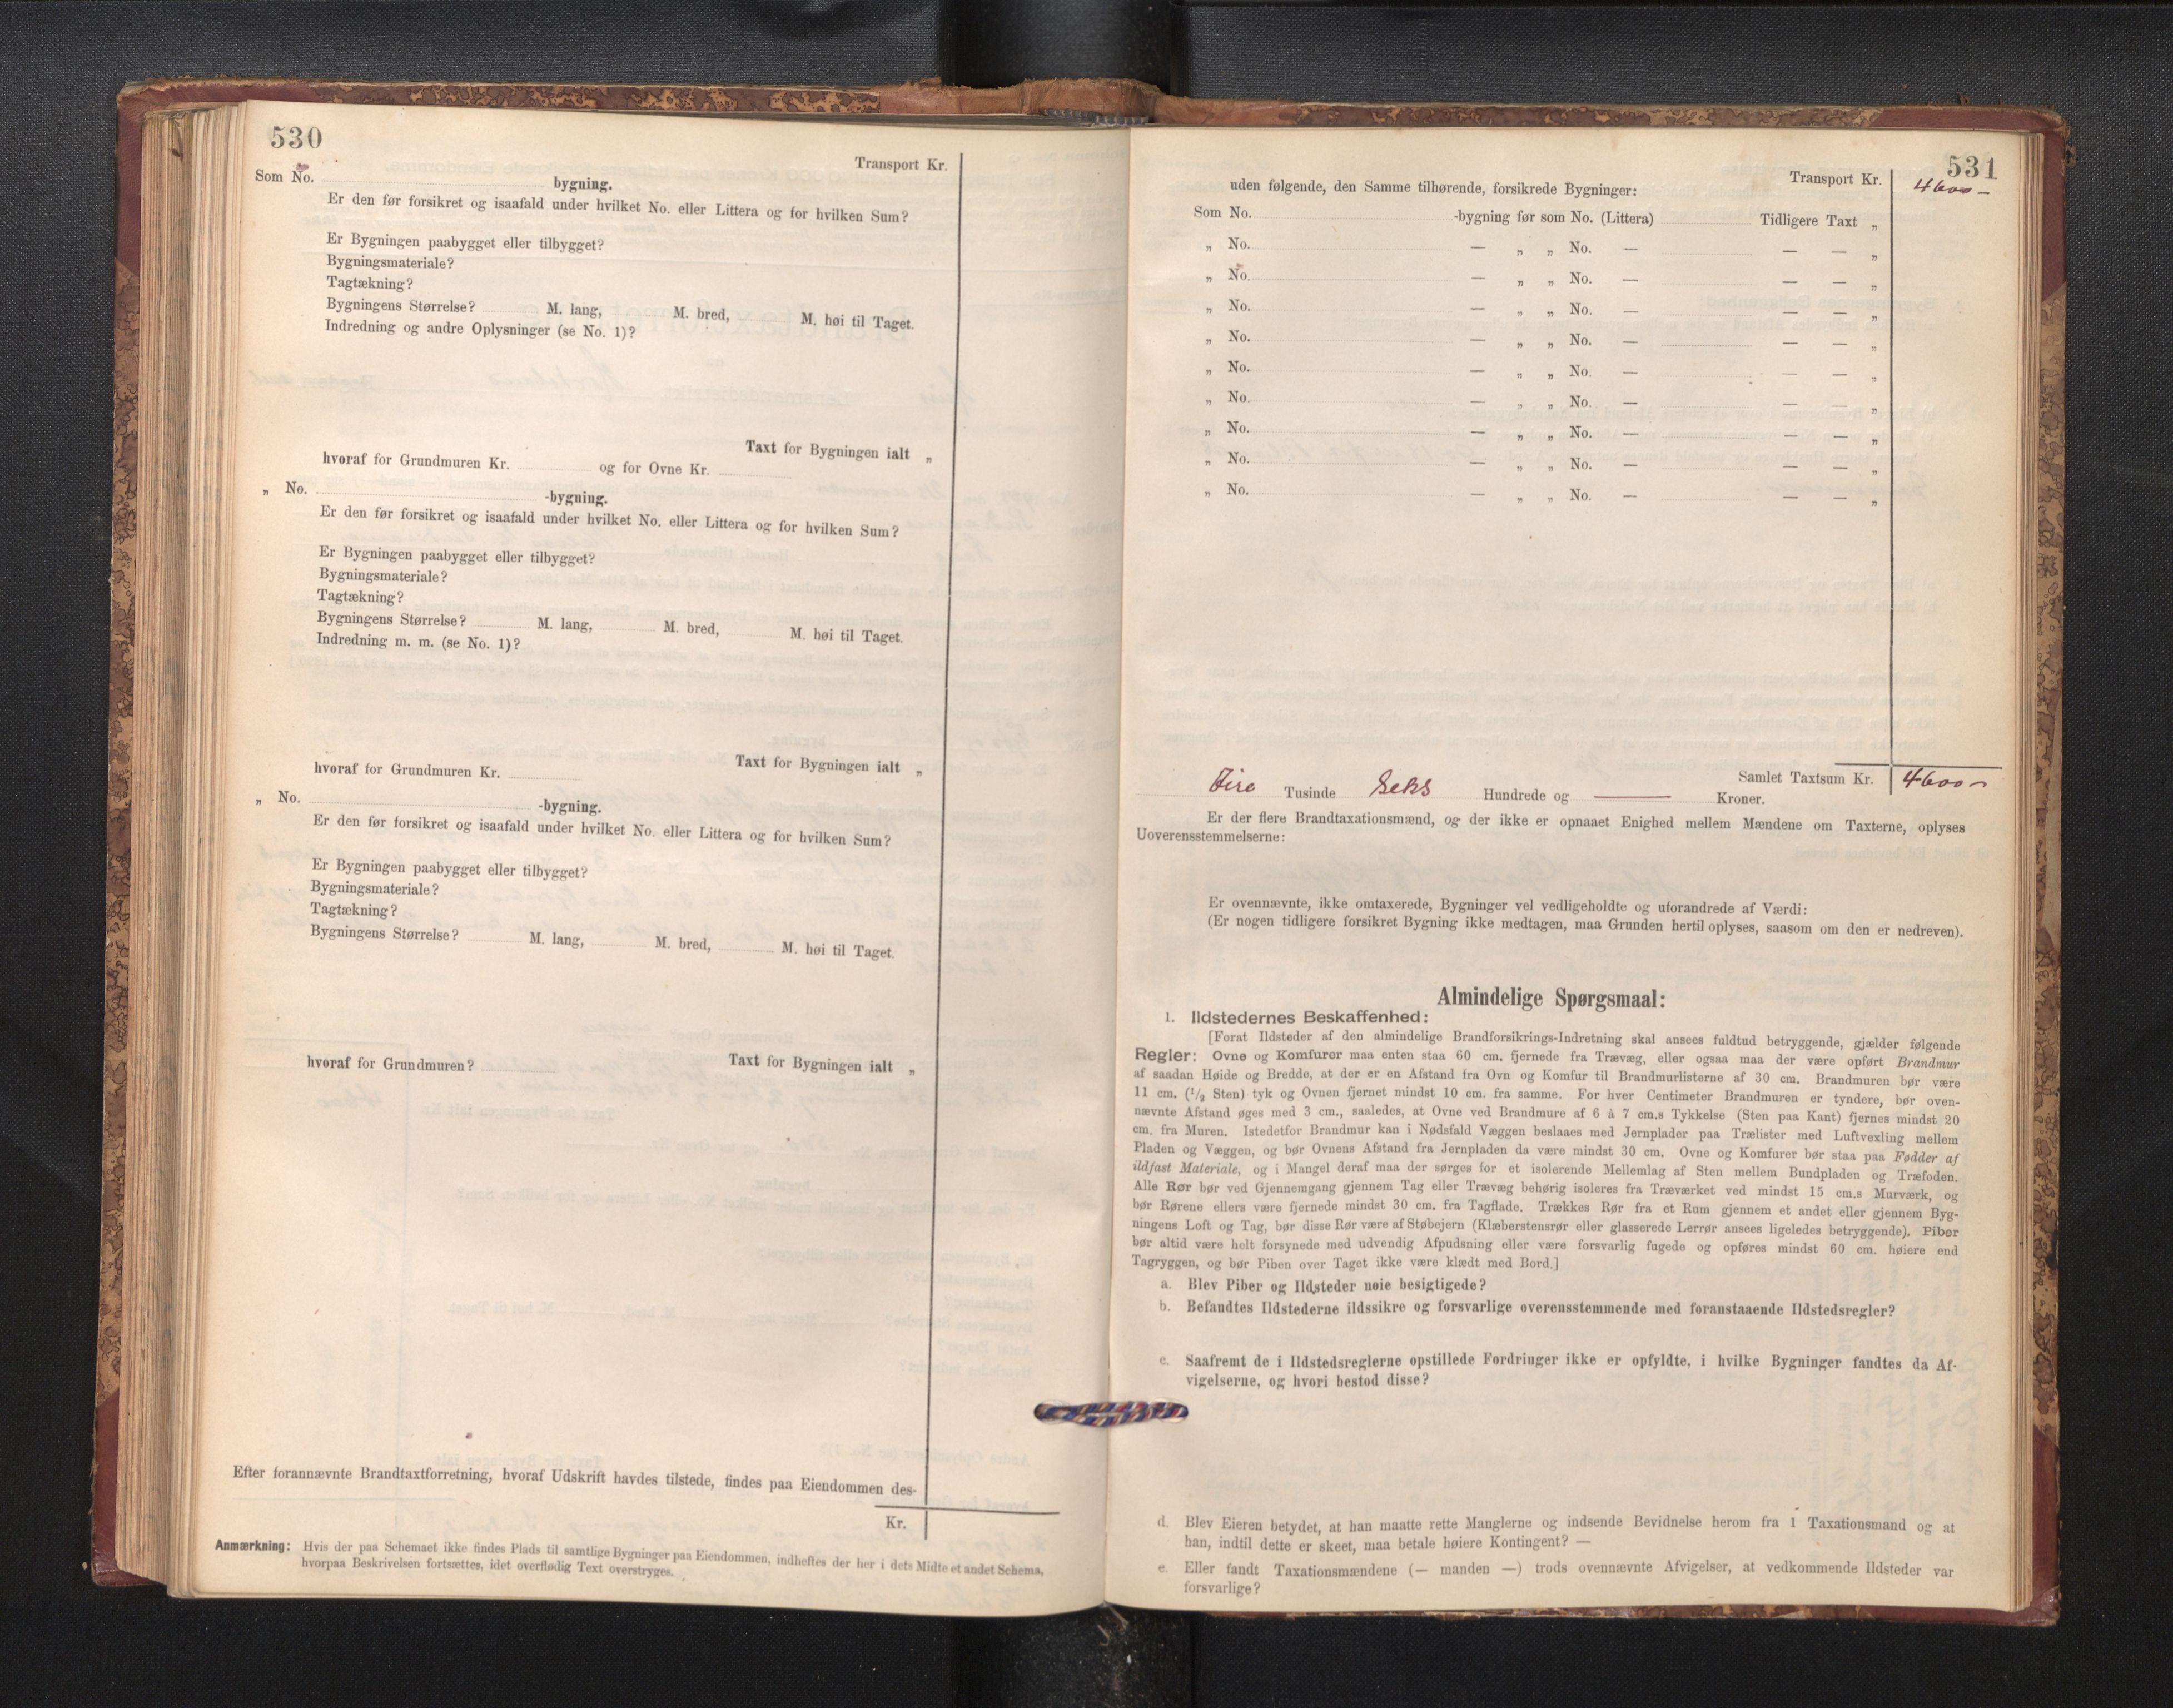 530
Transport Kr.
Som No. bygning.
Er den før forsikret og isaafald under hvilket No. eller Littera og for hvilken Sum?
Er Bygningen paabygget eller tilbygget?
Bygningsmateriale?
Tagtækning?
Bygningens Størrelse? M. lang, M. bred, M. høi til Taget.
Indredning og andre Oplysninger (se No. 1)?
Taxt for Bygningen ialt „
hvoraf for Grundmuren Kr. og for Ovne Kr.
„ No. -bygning.
Er den før forsikret og isaafald under hvilket No. eller Littera og for hvilken Sum?
Er Bygningen paabygget eller tilbygget?
Bygningsmateriale?
Tagtækning?
Bygningens Størrelse? M. lang, M. bred, M. høi til Taget.
Indredning m. m. (se No. 1)?
Taxt for Bygningen ialt „
hvoraf for Grundmuren Kr.
„ No. -bygning.
Er den før forsikret og isaafald under hvilket No. eller Littera og for hvilken Sum?
Er Bygningen paabygget eller tilbygget?
Bygningsmateriale?
Tagtækning?
Bygningens Størrelse? M. lang, M. bred, M. høi til Taget.
hvoraf for Grundmuren? Taxt for Bygningen ialt „
Efter forannævnte Brandtaxtforretning, hvoraf Udskrift havdes tilstede, findes paa Eiendommen des-
Kr.
Anmærkning: Hvis der paa Schemaet ikke findes Plads til samtlige Bygninger paa Eiendommen, indheftes der her i dets Midte et andet Schema,
hvorpaa Beskrivelsen fortsættes, idet overflødig Text overstryges.
531
Transport Kr. 4600 –
uden følgende, den Samme tilhørende, forsikrede Bygninger:
Som No. -bygning før som No. (Littera) Tidligere Taxt „
„ No. — „ „ No. — — — „
„ No. — „ „ No. — — — „
„ No. — „ „ No. — — — „
„ No. — „ „ No. — — — „
„ No. — „ „ No. — — — „
„ No. — „ „ No. — — — „
„ No. — „ „ No. — — — „
„ No. — „ „ No. — — — „
„ No. — „ „ No. — — — „
Samlet Taxtsum Kr. 4600 –
Fire Tusinde Seks Hundrede og — Kroner.
Er der flere Brandtaxationsmænd, og der ikke er opnaaet Enighed mellem Mændene om Taxterne, oplyses
Uoverensstemmelserne:
Er ovennævnte, ikke omtaxerede, Bygninger vel vedligeholdte og uforandrede af Værdi:
(Er nogen tidligere forsikret Bygning ikke medtagen, maa Grunden hertil oplyses, saasom om den er nedreven).
Almindelige Spørgsmaal:
1. Ildstedernes Beskaffenhed:
[Forat Ildsteder af den almindelige Brandforsikrings-Indretning skal ansees fuldtud betryggende, gjælder følgende
Regler: Ovne og Komfurer maa enten staa 60 cm. fjernede fra Trævæg, eller ogsaa maa der være opført Brandmur
af saadan Høide og Bredde, at der er en Afstand fra Ovn og Komfur til Brandmurlisterne af 30 cm. Brandmuren bør være
11 cm. (1/2 Sten) tyk og Ovnen fjernet mindst 10 cm. fra samme. For hver Centimeter Brandmuren er tyndere, bør oven-
nævnte Afstand øges med 3 cm., saaledes, at Ovne ved Brandmure af 6 à 7 cm.s Tykkelse (Sten paa Kant) fjernes mindst 20
cm. fra Muren. Istedetfor Brandmur kan i Nødsfald Væggen beslaaes med Jernplader paa Trælister med Luftvexling mellem
Pladen og Væggen, og bør Ovnens Afstand fra Jernpladen da være mindst 30 cm. Ovne og Komfurer bør staa paa Fødder af
ildfast Materiale, og i Mangel deraf maa der sørges for et isolerende Mellemlag af Sten mellem Bundpladen og Træfoden.
Alle Rør bør ved Gjennemgang gjennem Tag eller Trævæg behørig isoleres fra Træværket ved mindst 15 cm.s Murværk, og
bør Rørene ellers være fjernede mindst 30 cm. fra Tagflade. Trækkes Rør fra et Rum gjennem et andet eller gjennem Byg-
ningens Loft og Tag, bør disse Rør være af Støbejern (Klæberstensrør eller glasserede Lerrør ansees ligeledes betryggende). Piber
bør altid være helt forsynede med udvendig Afpudsning eller være forsvarlig fugede og opføres mindst 60 cm. høiere end
Tagryggen, og bør Piben over Taget ikke være klædt med Bord.]
a. Blev Piber og Ildsteder nøie besigtigede?
b. Befandtes Ildstederne ildssikre og forsvarlige overensstemmende med foranstaaende Ildstedsregler?
c. Saafremt de i Ildstedsreglerne opstillede Fordringer ikke er opfyldte, i hvilke Bygninger fandtes da Af-
vigelserne, og hvori bestod disse?
d. Blev Eieren betydet, at han maatte rette Manglerne og indsende Bevidnelse herom fra 1 Taxationsmand og at
han, indtil dette er skeet, maa betale høiere Kontingent? —
e. Eller fandt Taxationsmændene (— manden —) trods ovennævnte Afvigelser, at vedkommende Ildsteder var
forsvarlige?